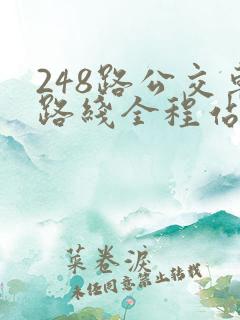 248路公交
路线全程佔
菜卷淚
未经同意禁止转载